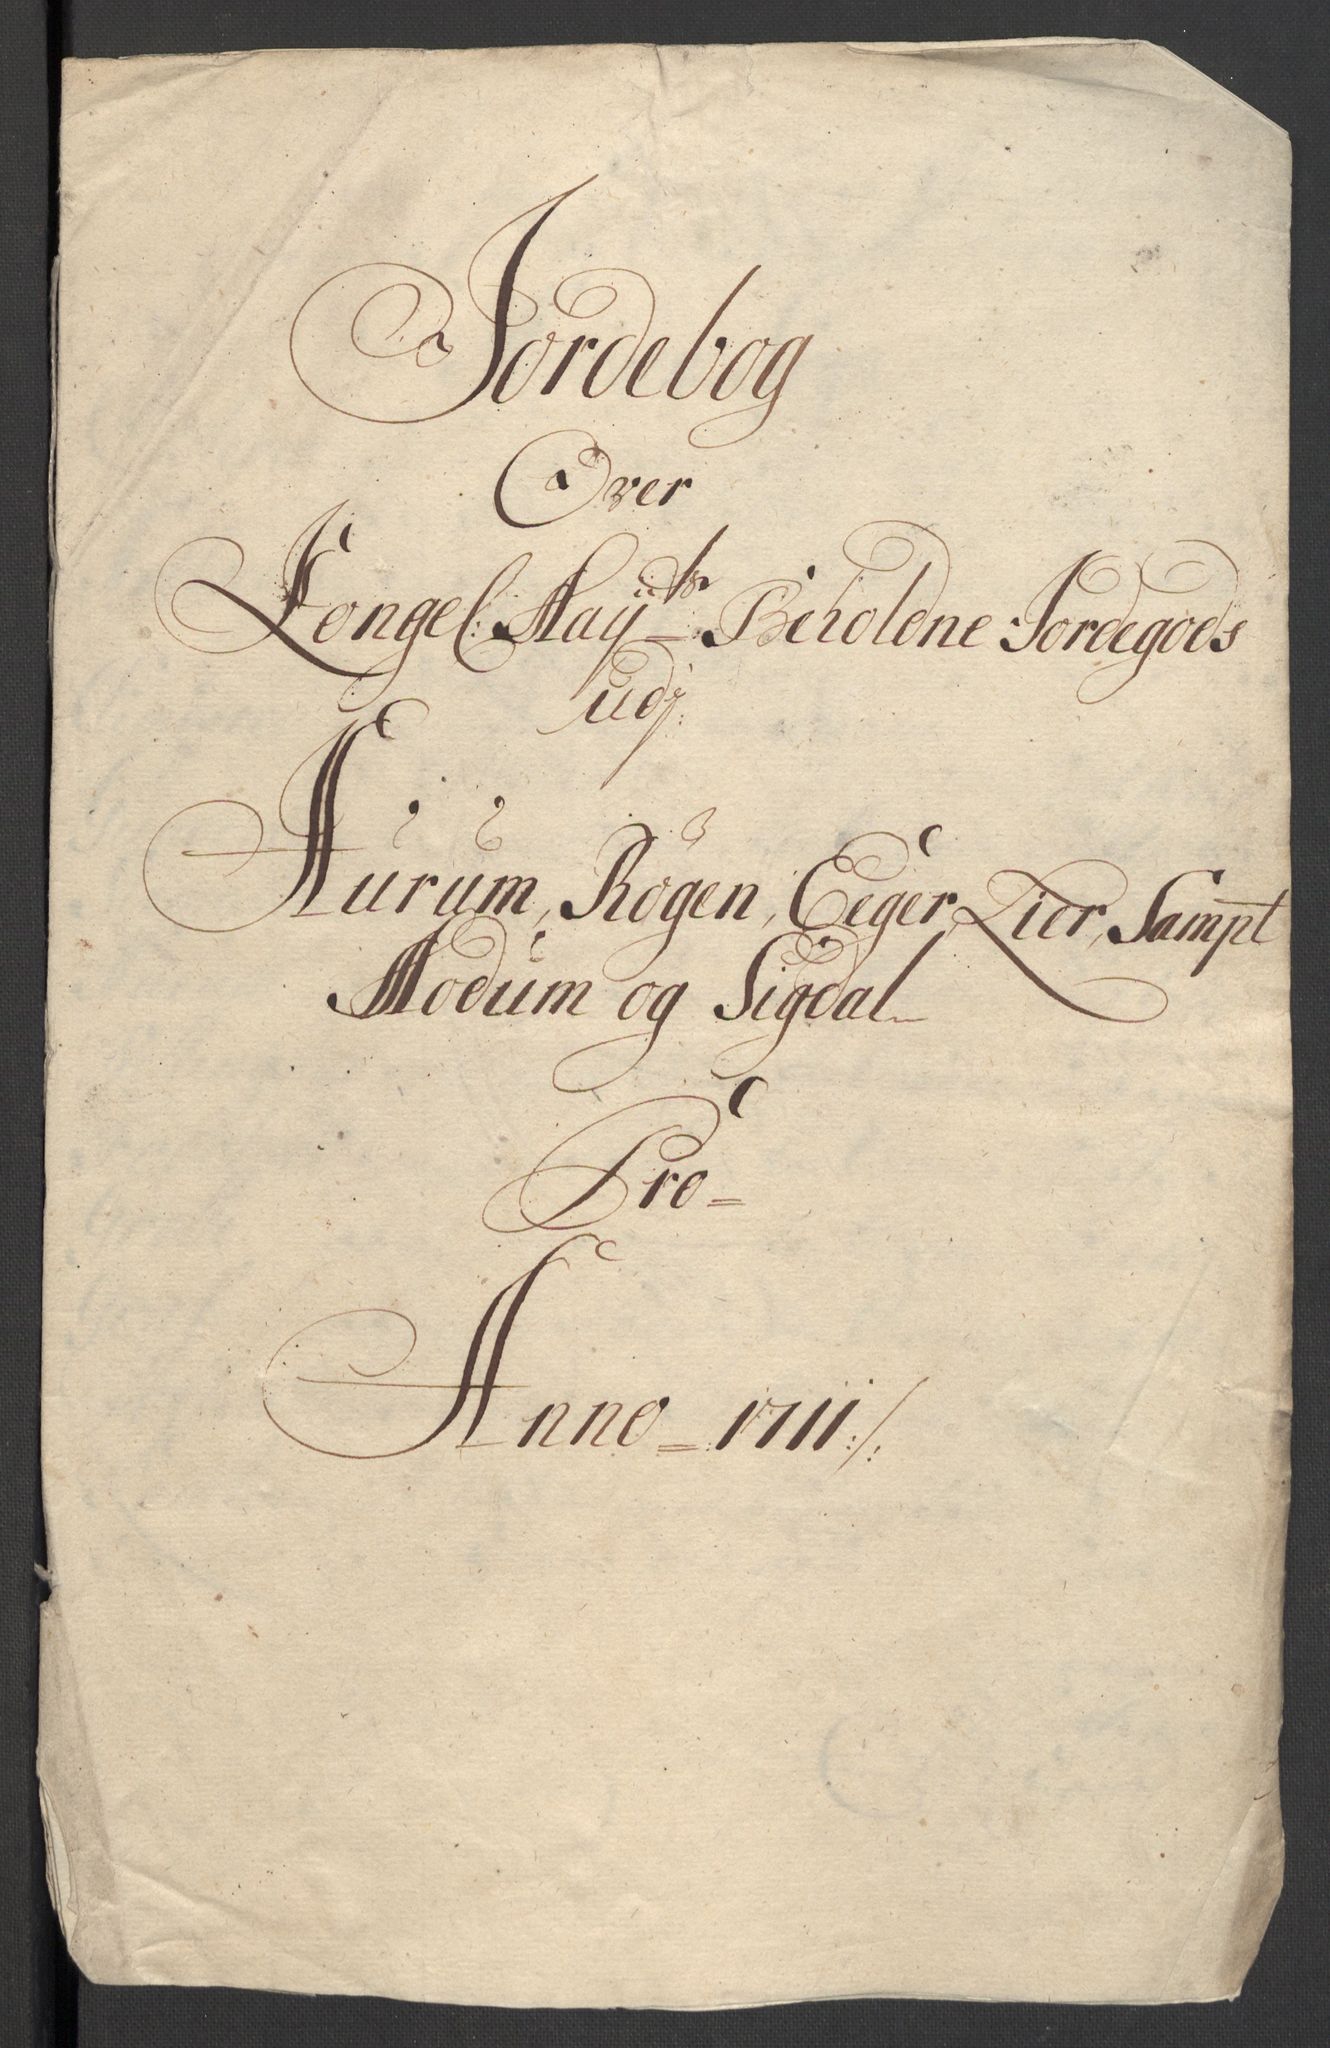 Jordebog
Over
Kongel: Maÿts: Beholdne Jordegods
udj
Hurum, Røgen, Eeger, Lier, Sampt
Modum og Sigdal
Pro =
Anno = 1711 ./.